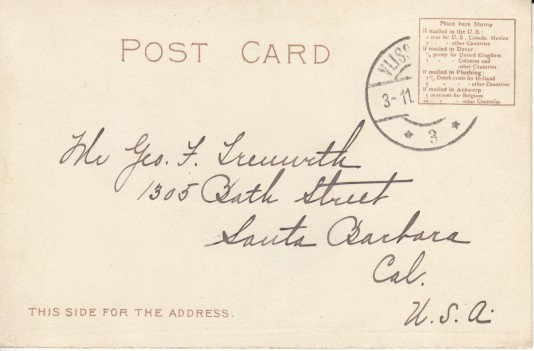 POST CARD
Place here Stamp
If mailed in the U.S.:
for U.S., Canada, Mexico
other Countries
If mailed in Dover:
penny for United Kingdom
Colonies and
other Countries
If mailed in Flushing:
Dutch cents for Holland
other Countries
If mailed in Antwerp:
centimes for Belgium
other Countries
VLISS
3-11
3
Mr Geo. F. Trenwith
1305 Bath Street
Santa Barbara
Cal.
U.S.A.
THIS SIDE FOR THE ADDRESS.